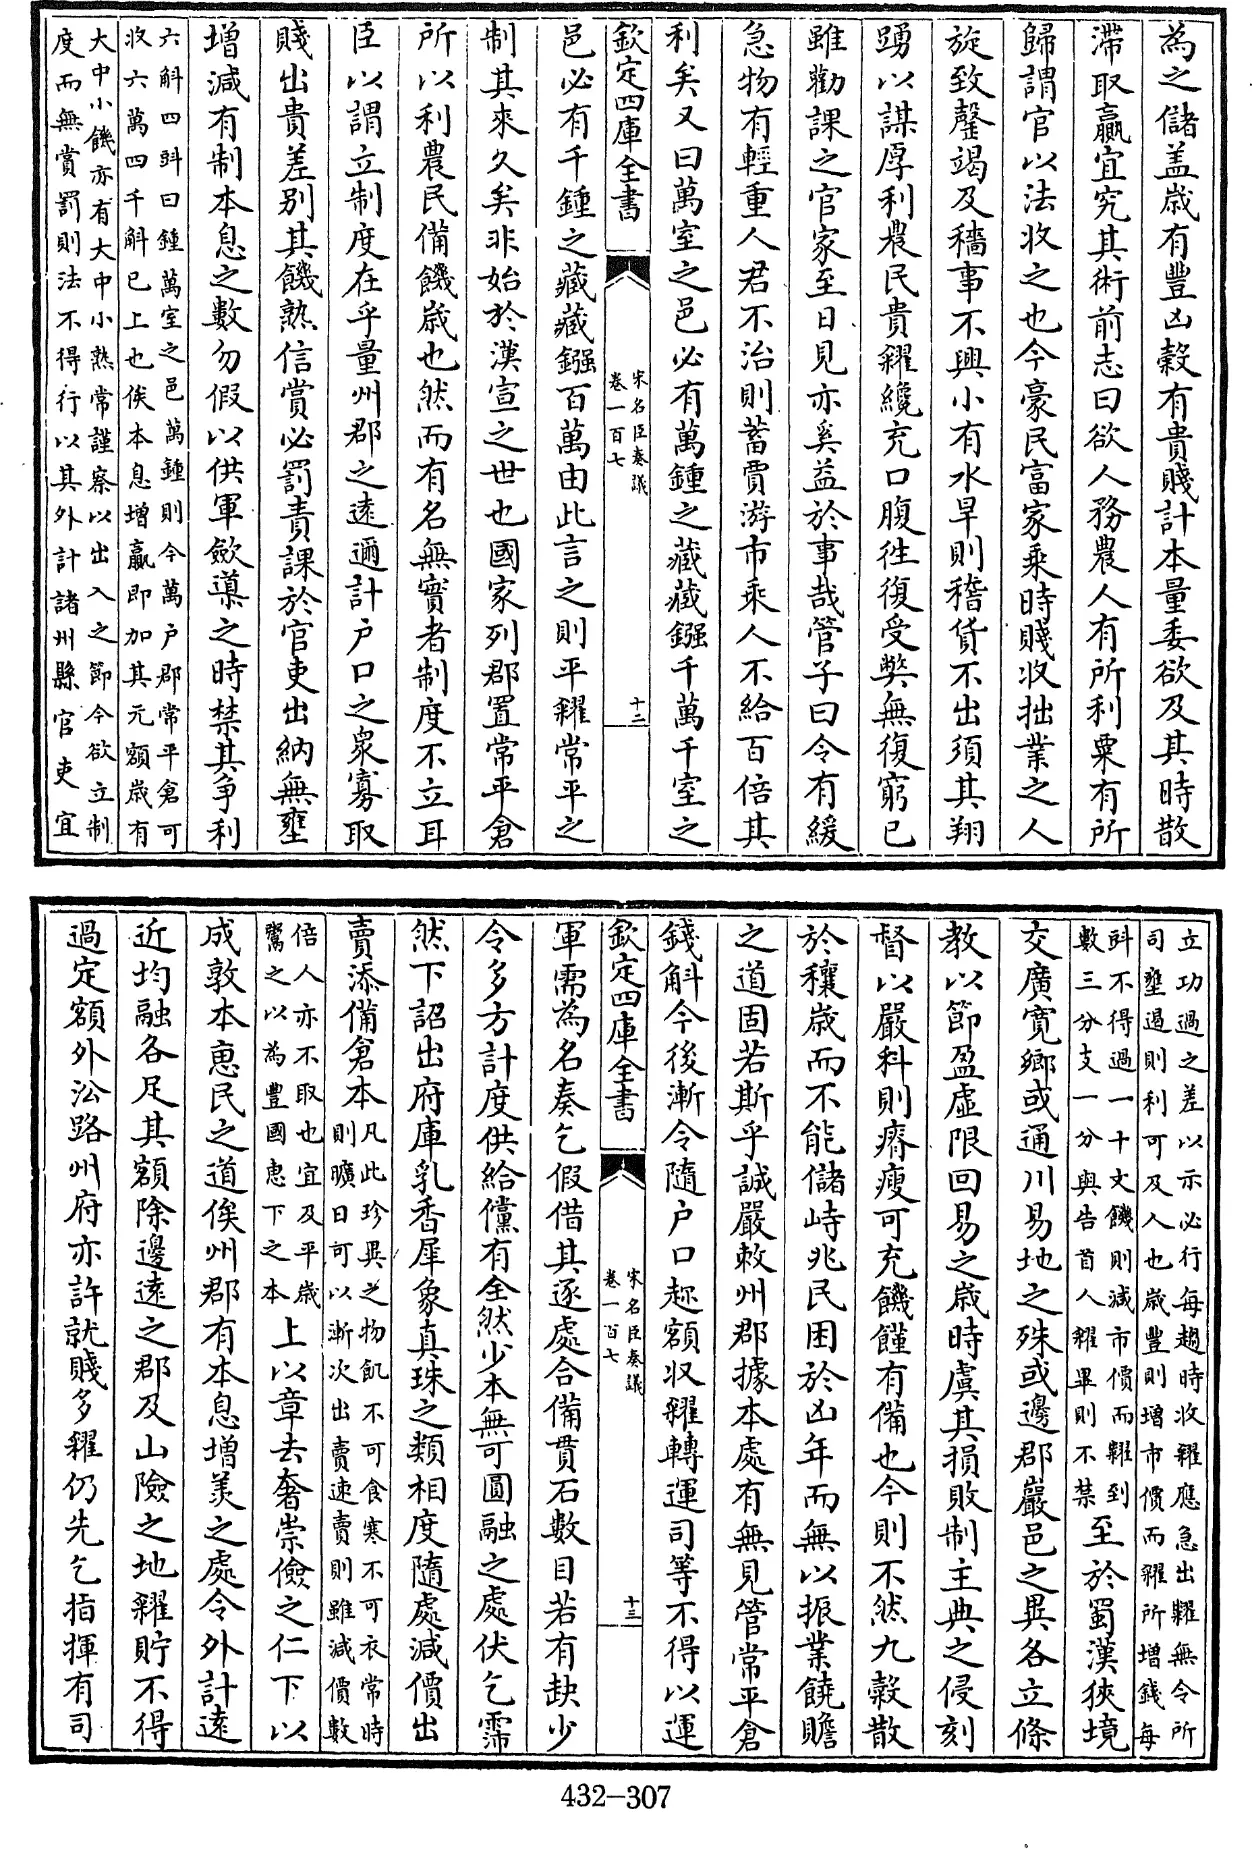 為之儲盖歳有豐凶穀有貴賤計本量委欲及其時散
滯取贏宜究其術前志曰欲人務農人有所利粟有所
歸謂官以法收之也今豪民富家乗時賤收拙業之人
旋致罄竭及穡事不興小有水旱則稽貨不出須其翔
踴以謀厚利農民貴糴纔充口腹徃復受獘無復窮已
雖勸課之官家至日見亦奚益於事哉管子曰令有緩
急物有輕重人君不治則蓄賈游市乘人不給百倍其
利矣又曰萬室之邑必有萬鍾之藏藏鏹千萬千室之
欽定四庫全書
宋名臣奏議
卷一百七
十二
邑必有千鍾之藏藏鏹百萬由此言之則平糴常平之
制其來久矣非始於漢宣之世也國家列郡置常平倉
所以利農民備饑歳也然而有名無實者制度不立耳
臣以謂立制度在乎量州郡之遠邇計户口之衆寡取
賤出貴差别其饑熟信賞必罰責課於官吏出納無壅
增減有制本息之數勿假以供軍斂導之時禁其争利
六斛四㪷曰鍾萬室之邑萬鍾則今萬户郡常平倉可
收六萬四千斛已上也俟本息增贏即加其元額歳有
大中小饑亦有大中小熟常謹察以出入之節今欲立制
度而無賞罰則法不得行以其外計諸州縣官吏宜
立功過之差以示必行每趨時收糴應急出糶無令所
司壅遏則利可及人也歳豐則増市價而糴所増錢每
㪷不得過一十文饑則減市價而糶到
數三分支一分與告首人糴畢則不禁
至於蜀漢狹境
交廣寛鄉或通川易地之殊或邊郡嚴邑之異各立條
教以節盈虚限回易之歳時虞其損敗制主典之侵刻
督以嚴科則瘠瘦可充饑饉有備也今則不然九穀散
於穰歳而不能儲峙兆民困於凶年而無以振業饒贍
之道固若斯乎誠嚴敕州郡據本處有無見管常平倉
錢斛今後漸令隨户口趂額収糴轉運司等不得以運
欽定四庫全書
宋名臣奏議
卷一百七
十三
軍需為名奏乞假借其逐處合備貫石數目若有缺少
令多方計度供給儻有全然少本無可圓融之處伏乞霈
然下詔出府庫乳香犀象真珠之類相度隨處減價出
賣添備倉本
凡此珍異之物飢不可食寒不可衣常時
則曠日可以漸次出賣速賣則雖減價數
倍人亦不取也宜及平歳
鬻之以為豐國恵下之本
上以章去奢崇儉之仁下以
成敦本恵民之道俟州郡有本息増羡之處令外計遠
近均融各足其額除邊遠之郡及山險之地糴貯不得
過定額外㳂路州府亦許就賤多糴仍先乞指揮有司
432-307